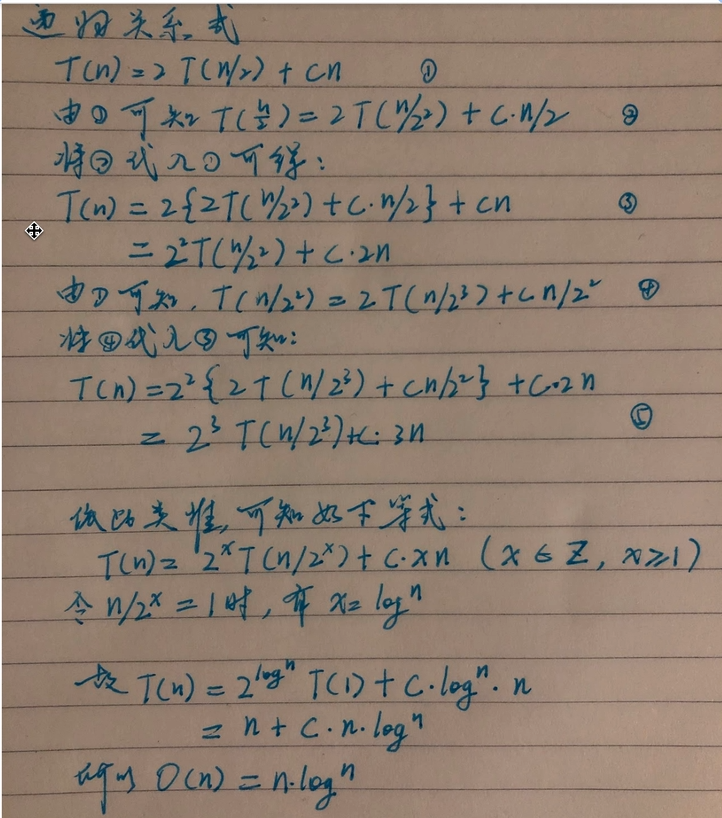 递归关系式
T(n) = 2 T(n/2) + cn ①
由①可知 T(n/2) = 2 T(n/2²) + c·n/2 ②
将②代入①可得:
T(n) = 2{2T(n/2²) + c·n/2} + cn ③
= 2²T(n/2²) + c·2n
由①可知, T(n/2²) = 2T(n/2³) + c n/2² ④
将④代入③可知:
T(n) = 2²{2T(n/2³) + cn/2²} + c·2n
= 2³ T(n/2³) + c·3n ⑤
依此类推, 可知如下等式:
T(n) = 2ˣT(n/2ˣ) + c·xn (x ∈ Z, x≥1)
令 n/2ˣ = 1时, 有 x = logⁿ
故 T(n) = 2^logⁿ T(1) + c·logⁿ·n
= n + c·n·logⁿ
所以 O(n) = n·logⁿ